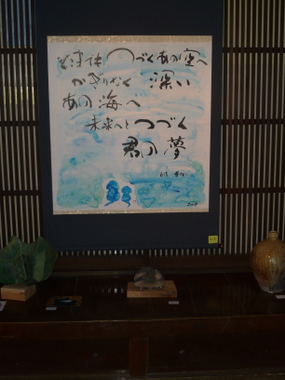 つづくあの空へ
かぎりなく 深い
あの海へ
未来へとつづく
君の夢